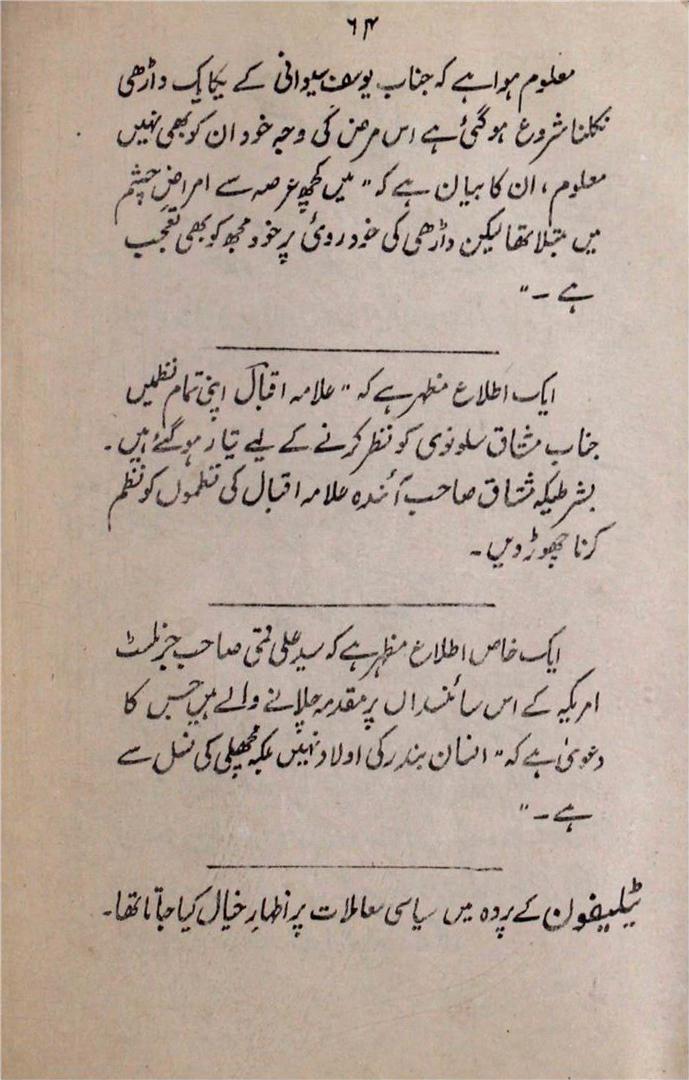 ۶۴
معلوم ہوا ہے کہ جناب یوسف سیوانی کے یکایک داڑھی
نکلنا شروع ہوگئی ہے اس مرض کی وجہ خود ان کو بھی نہیں
معلوم، ان کا بیان ہے کہ "میں کچھ عرصہ سے امراضِ چشم
میں مبتلا تھا لیکن داڑھی کی خود روئی پر خود مجھ کو بھی تعجب
ہے ۔"
ایک اطلاع مظہر ہے کہ "علامہ اقبال اپنی تمام نظمیں
جناب مشتاق سلونوی کو نظر کرنے کے لیے تیار ہوگئے ہیں ۔
بشرطیکہ مشتاق صاحب آئندہ علامہ اقبال کی نظموں کو نظم
کرنا چھوڑ دیں ۔
ایک خاص اطلاع مظہر ہے کہ سید علی نقی صاحب جرنلسٹ
امریکہ کے اس سائنسداں پر مقدمہ چلانے والے ہیں جس کا
دعویٰ ہے کہ "انسان بندر کی اولاد نہیں بلکہ مچھلی کی نسل سے
ہے ۔"
ٹیلیفون کے پردہ میں سیاسی معاملات پر اظہارِ خیال کیا جاتا تھا ۔